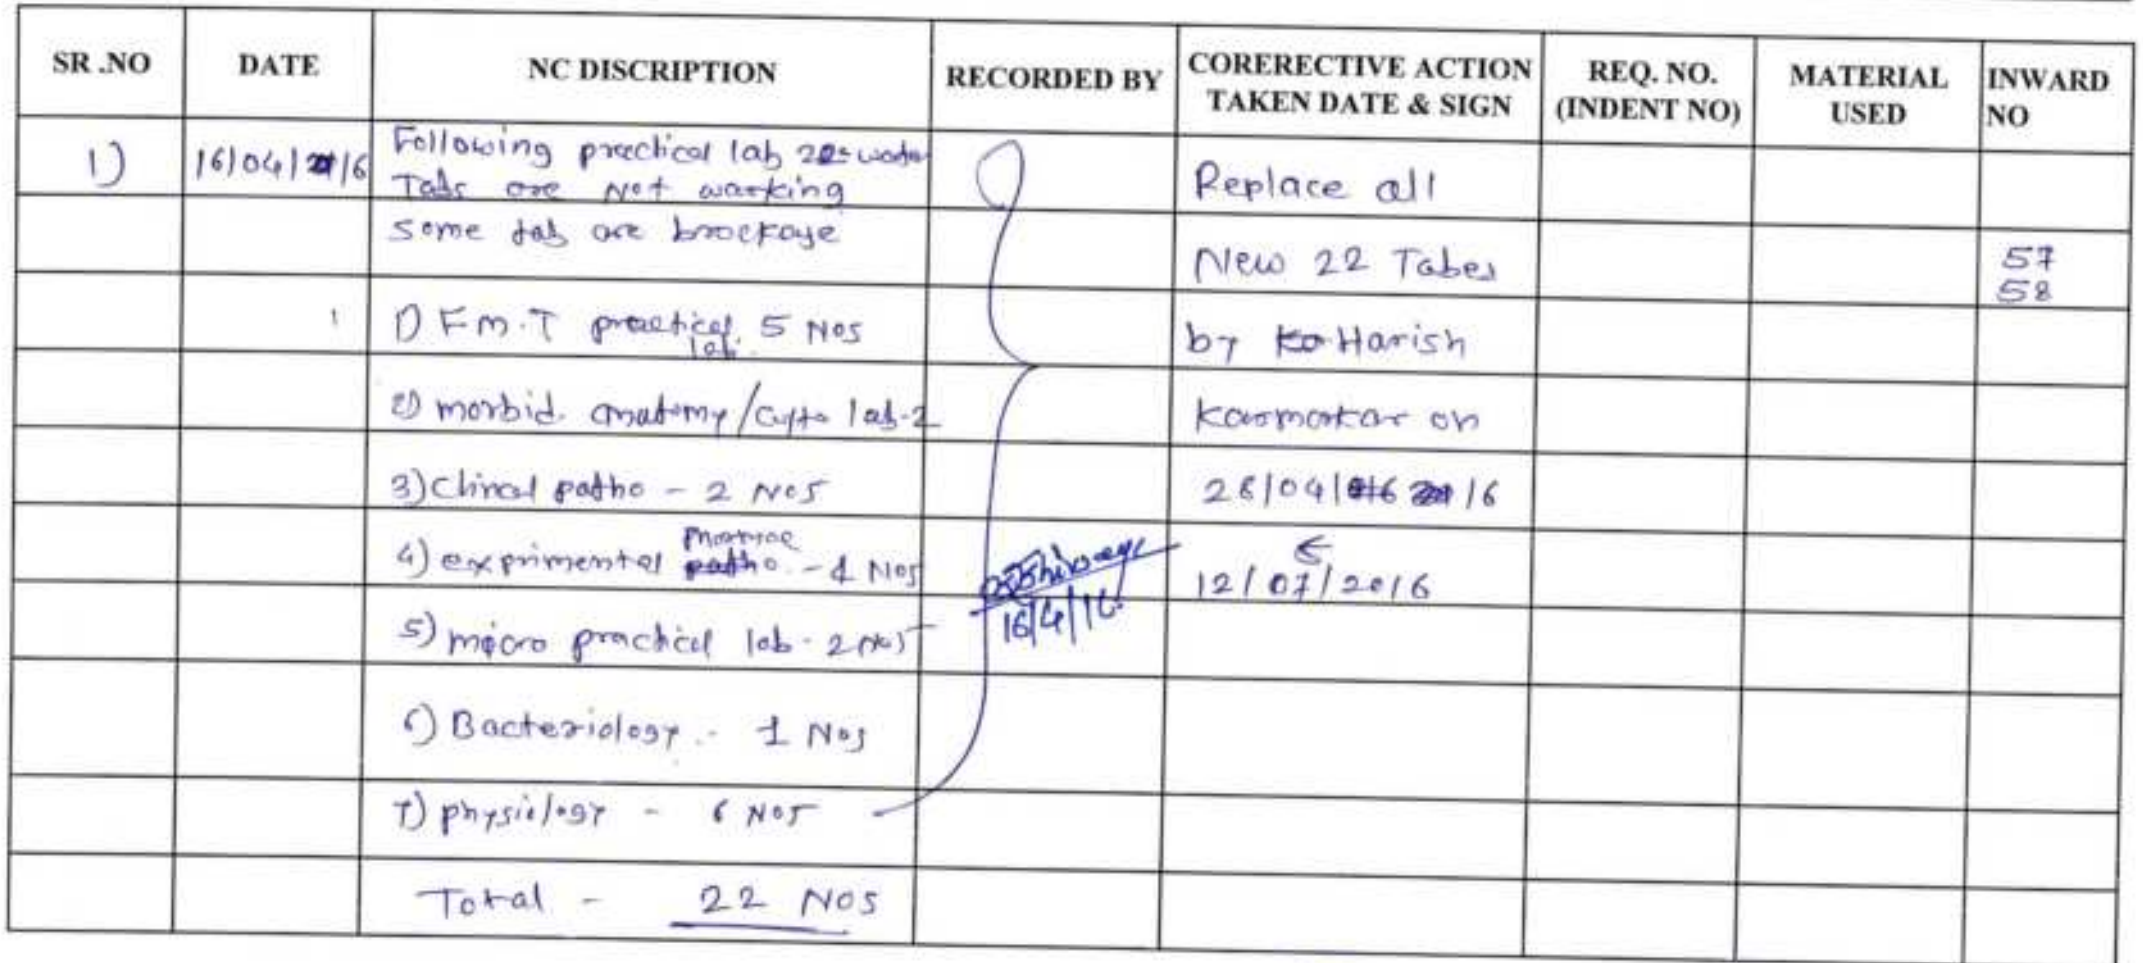 SR .NO DATE NC DISCRIPTION RECORDED BY CORERECTIVE ACTION TAKEN DATE & SIGN REQ. NO. (INDENT NO) MATERIAL USED INWARD NO
1) 16/04/16 Following practical lab water
Tabs are Not working
Replace all
some tab are brockage
New 22 Tabes
57
58
1) F.M.T practical lab. 5 Nos
by Harish
2) morbid. anatomy/Cyto lab-2
Karmarkar on
3) Clincal patho - 2 Nos
28/04/16
4) exprimental - 4 Nos
12/07/2016
5
16/4/16
5) micro practical lab - 2 Nos
6) Bacteriology - 1 Nos
7) physiology - 6 Nos
Total - 22 Nos